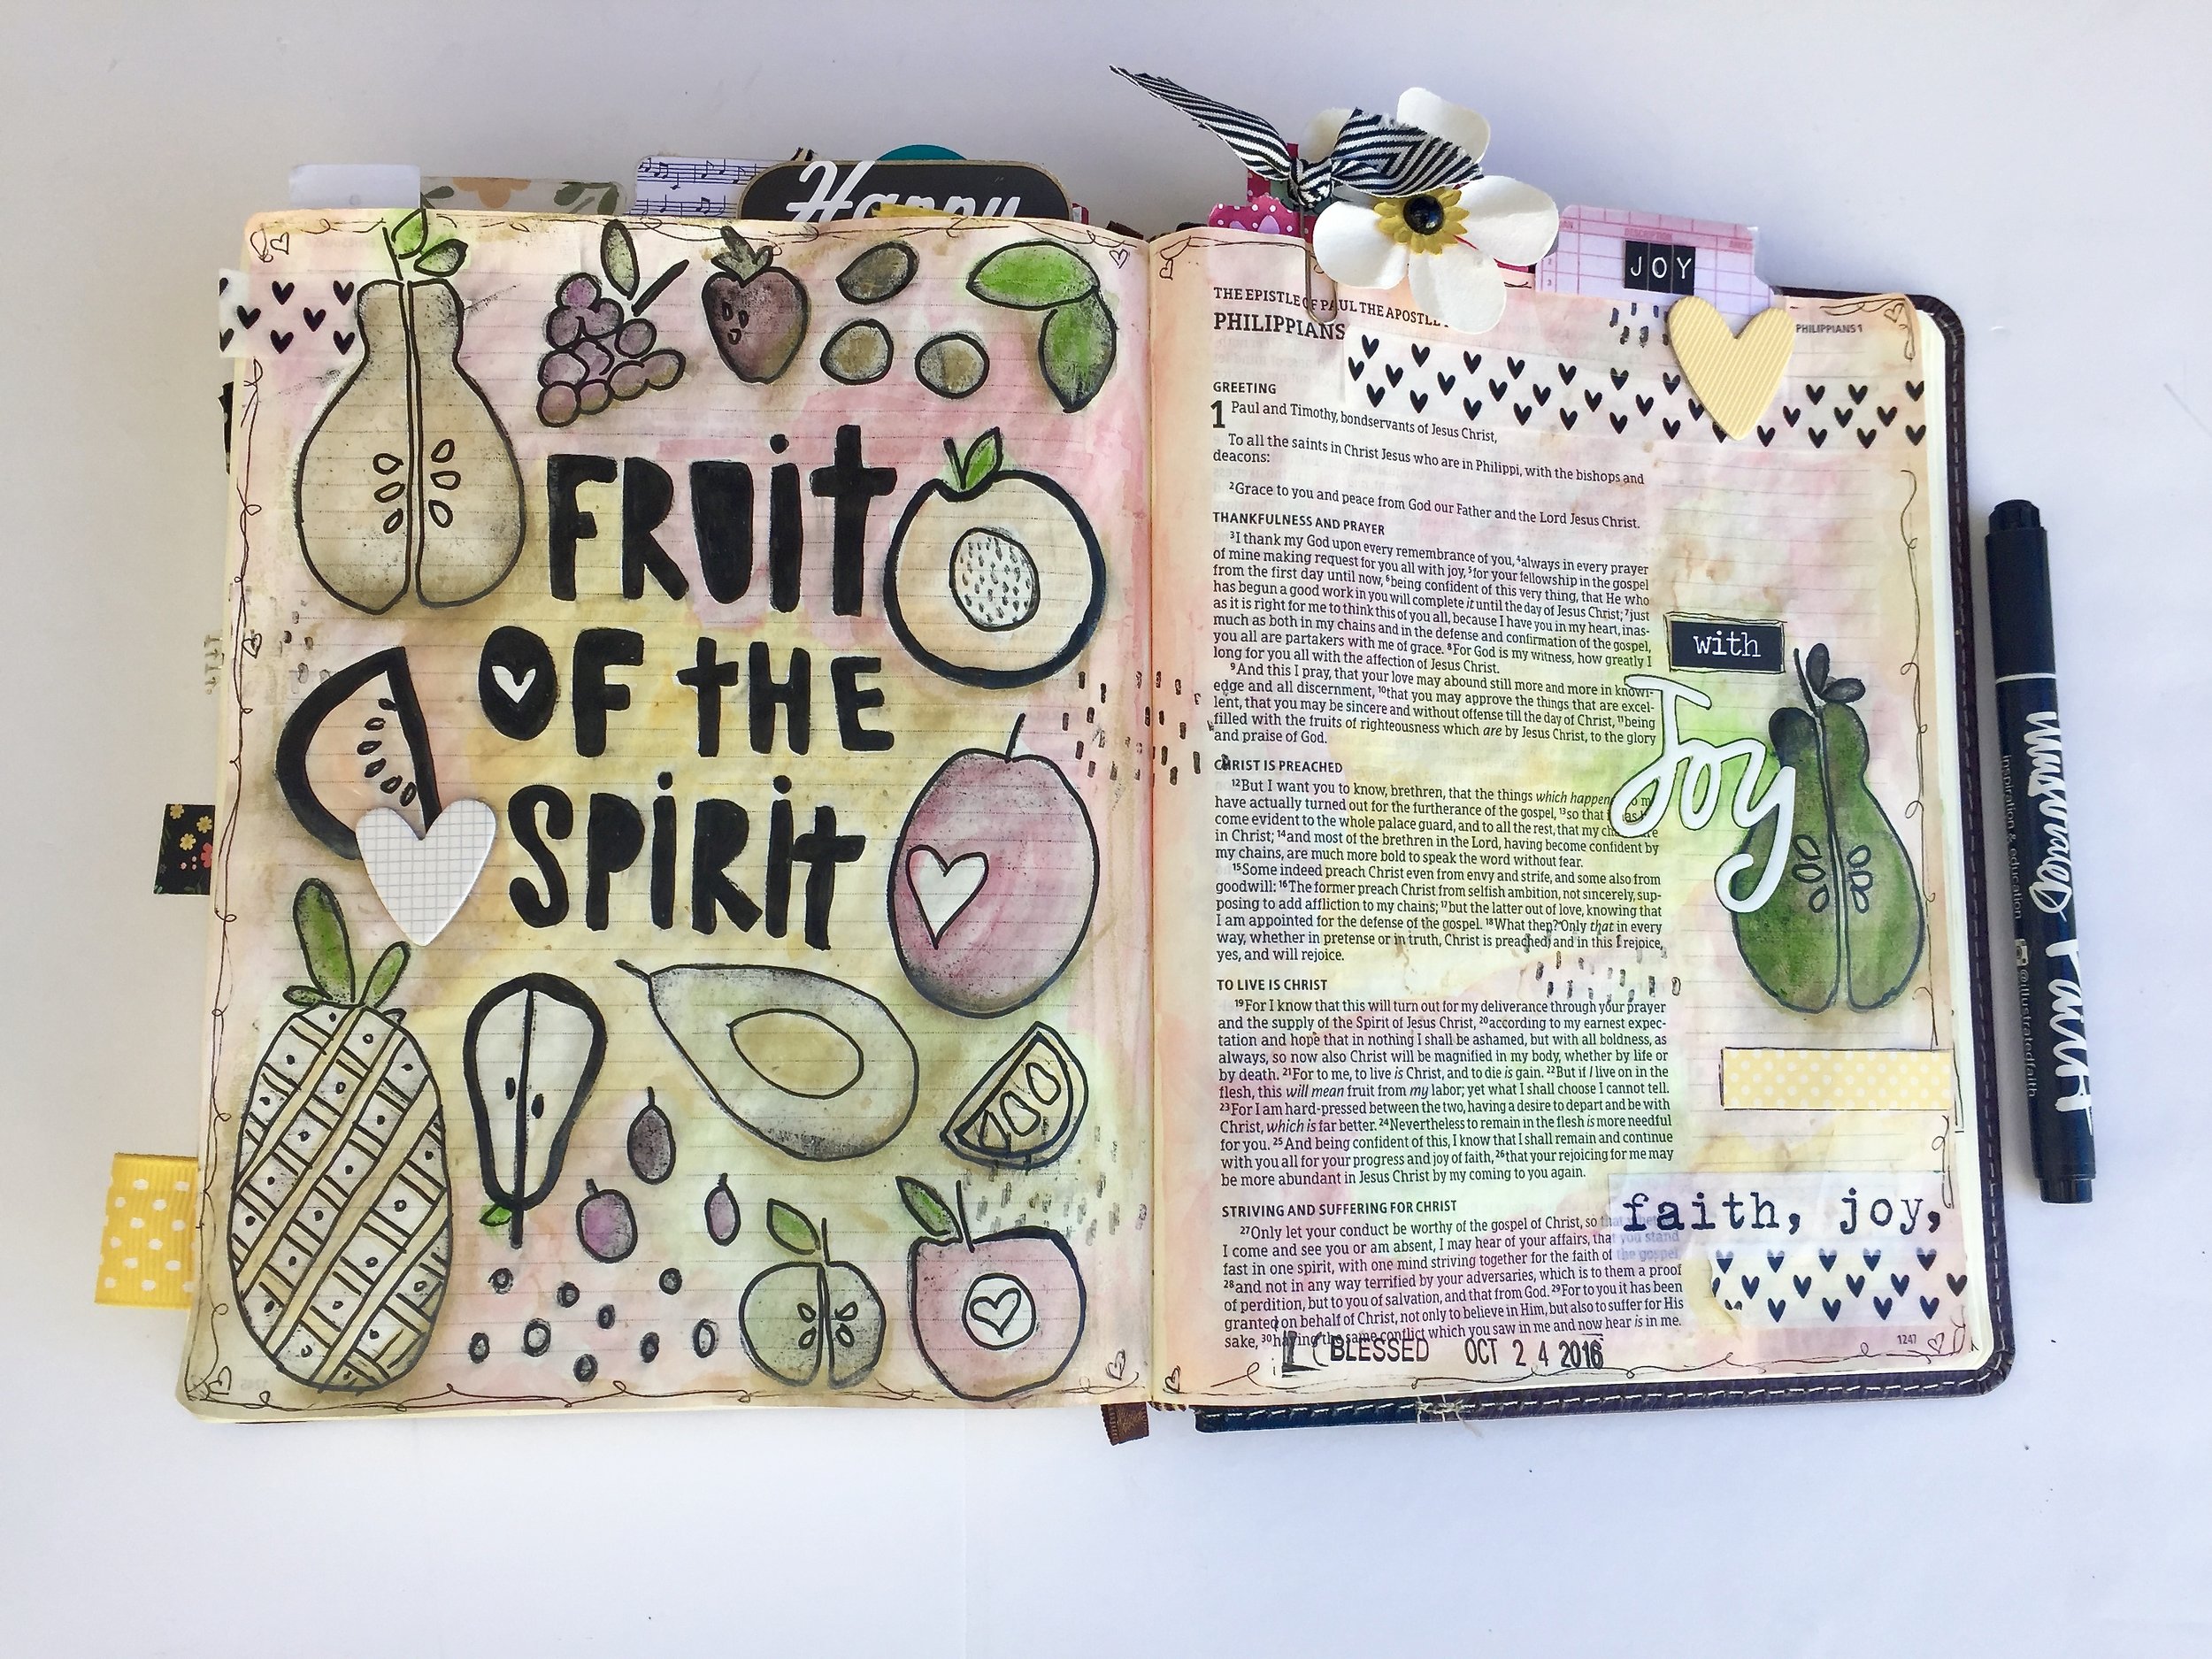 Happy
JOY
FRUit
OF tHE
SPiRit
THE EPISTLE OF PAUL THE APOSTLE
PHILIPPIANS
PHILIPPIANS 1
GREETING
1 Paul and Timothy, bondservants of Jesus Christ,
To all the saints in Christ Jesus who are in Philippi, with the bishops and
deacons:
2Grace to you and peace from God our Father and the Lord Jesus Christ.
THANKFULNESS AND PRAYER
3I thank my God upon every remembrance of you, 4always in every prayer
of mine making request for you all with joy, 5for your fellowship in the gospel
from the first day until now, 6being confident of this very thing, that He who
has begun a good work in you will complete it until the day of Jesus Christ; 7just
as it is right for me to think this of you all, because I have you in my heart, inas-
much as both in my chains and in the defense and confirmation of the gospel,
you all are partakers with me of grace. 8For God is my witness, how greatly I
long for you all with the affection of Jesus Christ.
9And this I pray, that your love may abound still more and more in knowl-
edge and all discernment, 10that you may approve the things that are excel-
lent, that you may be sincere and without offense till the day of Christ, 11being
filled with the fruits of righteousness which are by Jesus Christ, to the glory
and praise of God.
CHRIST IS PREACHED
12But I want you to know, brethren, that the things which happened to me
have actually turned out for the furtherance of the gospel, 13so that it has be-
come evident to the whole palace guard, and to all the rest, that my chains are
in Christ; 14and most of the brethren in the Lord, having become confident by
my chains, are much more bold to speak the word without fear.
15Some indeed preach Christ even from envy and strife, and some also from
goodwill: 16The former preach Christ from selfish ambition, not sincerely, sup-
posing to add affliction to my chains; 17but the latter out of love, knowing that
I am appointed for the defense of the gospel. 18What then? Only that in every
way, whether in pretense or in truth, Christ is preached; and in this I rejoice,
yes, and will rejoice.
TO LIVE IS CHRIST
19For I know that this will turn out for my deliverance through your prayer
and the supply of the Spirit of Jesus Christ, 20according to my earnest expec-
tation and hope that in nothing I shall be ashamed, but with all boldness, as
always, so now also Christ will be magnified in my body, whether by life or
by death. 21For to me, to live is Christ, and to die is gain. 22But if I live on in the
flesh, this will mean fruit from my labor; yet what I shall choose I cannot tell.
23For I am hard-pressed between the two, having a desire to depart and be with
Christ, which is far better. 24Nevertheless to remain in the flesh is more needful
for you. 25And being confident of this, I know that I shall remain and continue
with you all for your progress and joy of faith, 26that your rejoicing for me may
be more abundant in Jesus Christ by my coming to you again.
STRIVING AND SUFFERING FOR CHRIST
27Only let your conduct be worthy of the gospel of Christ, so that whether
I come and see you or am absent, I may hear of your affairs, that you stand
fast in one spirit, with one mind striving together for the faith of the gospel,
28and not in any way terrified by your adversaries, which is to them a proof
of perdition, but to you of salvation, and that from God. 29For to you it has been
granted on behalf of Christ, not only to believe in Him, but also to suffer for His
sake, 30having the same conflict which you saw in me and now hear is in me.
with
Joy
faith, joy,
BLESSED OCT 24 2016
1247
illustrated Faith
inspiration & education @illustratedfaith